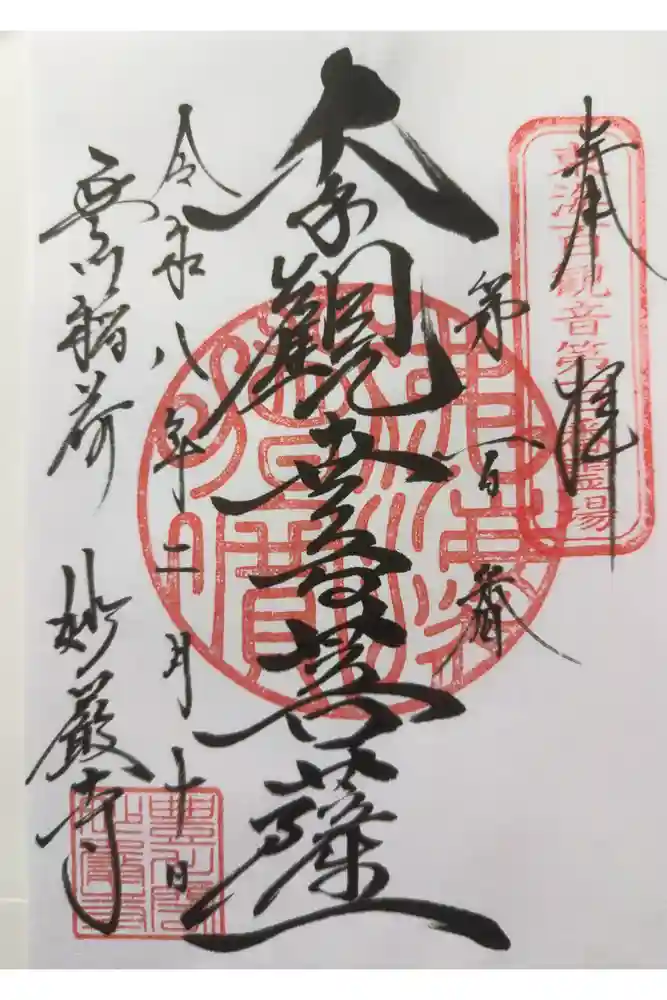 奉拝
東海百観音第百番霊場
第百番
觀世音菩薩
令和八年二月十日
豊川稲荷 妙厳寺